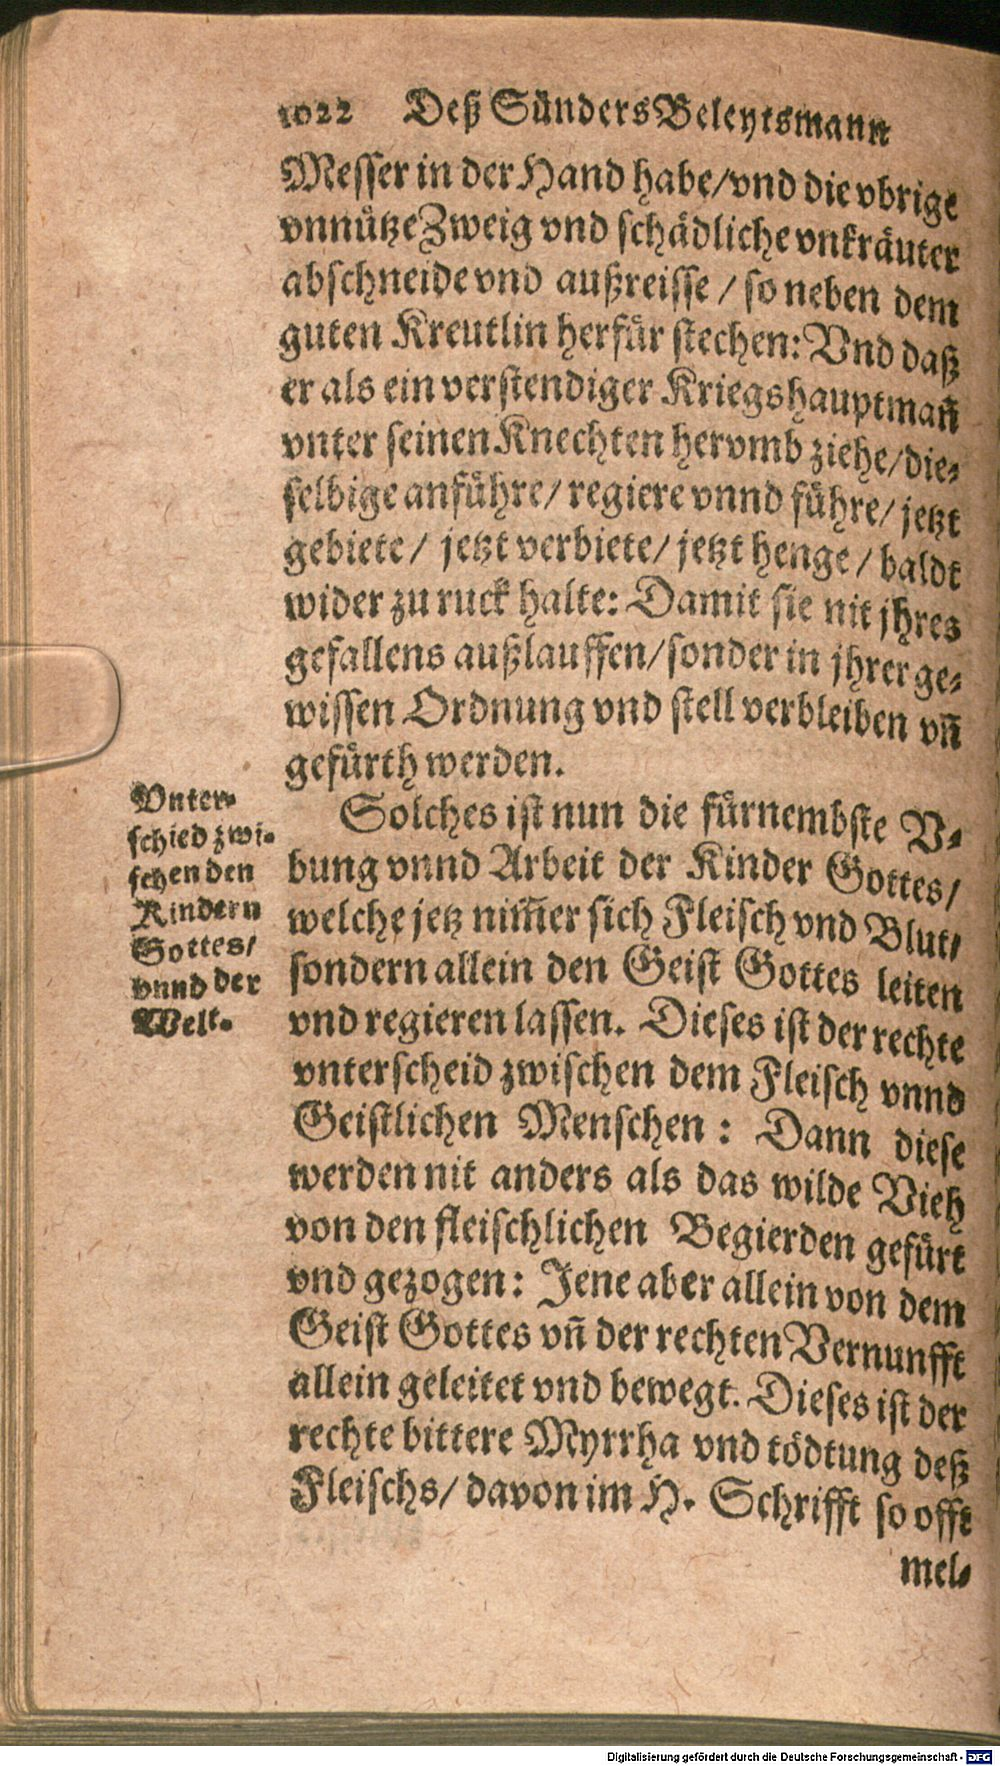 1022 Deß Sünders Beleytsmann
Messer in der Hand habe/vnd die vbrige
vnnütze Zweig vnd schädliche vnkräuter
abschneide vnd außreisse / so neben dem
guten Kreutlin herfür stechen: Vnd daß
er als ein verstendiger Kriegshauptmañ
vnter seinen Knechten hervmb ziehe/die-
selbige anführe/ regiere vnnd führe/ jetzt
gebiete/ jetzt verbiete/ jetzt henge / baldt
wider zu ruck halte: Damit sie nit jhres
gefallens außlauffen/sonder in jhrer ge-
wissen Ordnung vnd stell verbleiben vñ
gefürth werden.
Solches ist nun die fürnembste V-
bung vnnd Arbeit der Kinder Gottes/
welche jetz nim̃er sich Fleisch vnd Blut/
sondern allein den Geist Gottes leiten
vnd regieren lassen. Dieses ist der rechte
vnterscheid zwischen dem Fleisch vnnd
Geistlichen Menschen : Dann diese
werden nit anders als das wilde Vieh
von den fleischlichen Begierden gefürt
vnd gezogen: Jene aber allein von dem
Geist Gottes vñ der rechten Vernunfft
allein geleitet vnd bewegt. Dieses ist der
rechte bittere Myrrha vnd tödtung deß
Fleischs/ davon im H. Schrifft so offt
mel-
Vnter-
schied zwi-
schen den
Kindern
Gottes/
vnnd der
Welt.
Digitalisierung gefördert durch die Deutsche Forschungsgemeinschaft - DFG